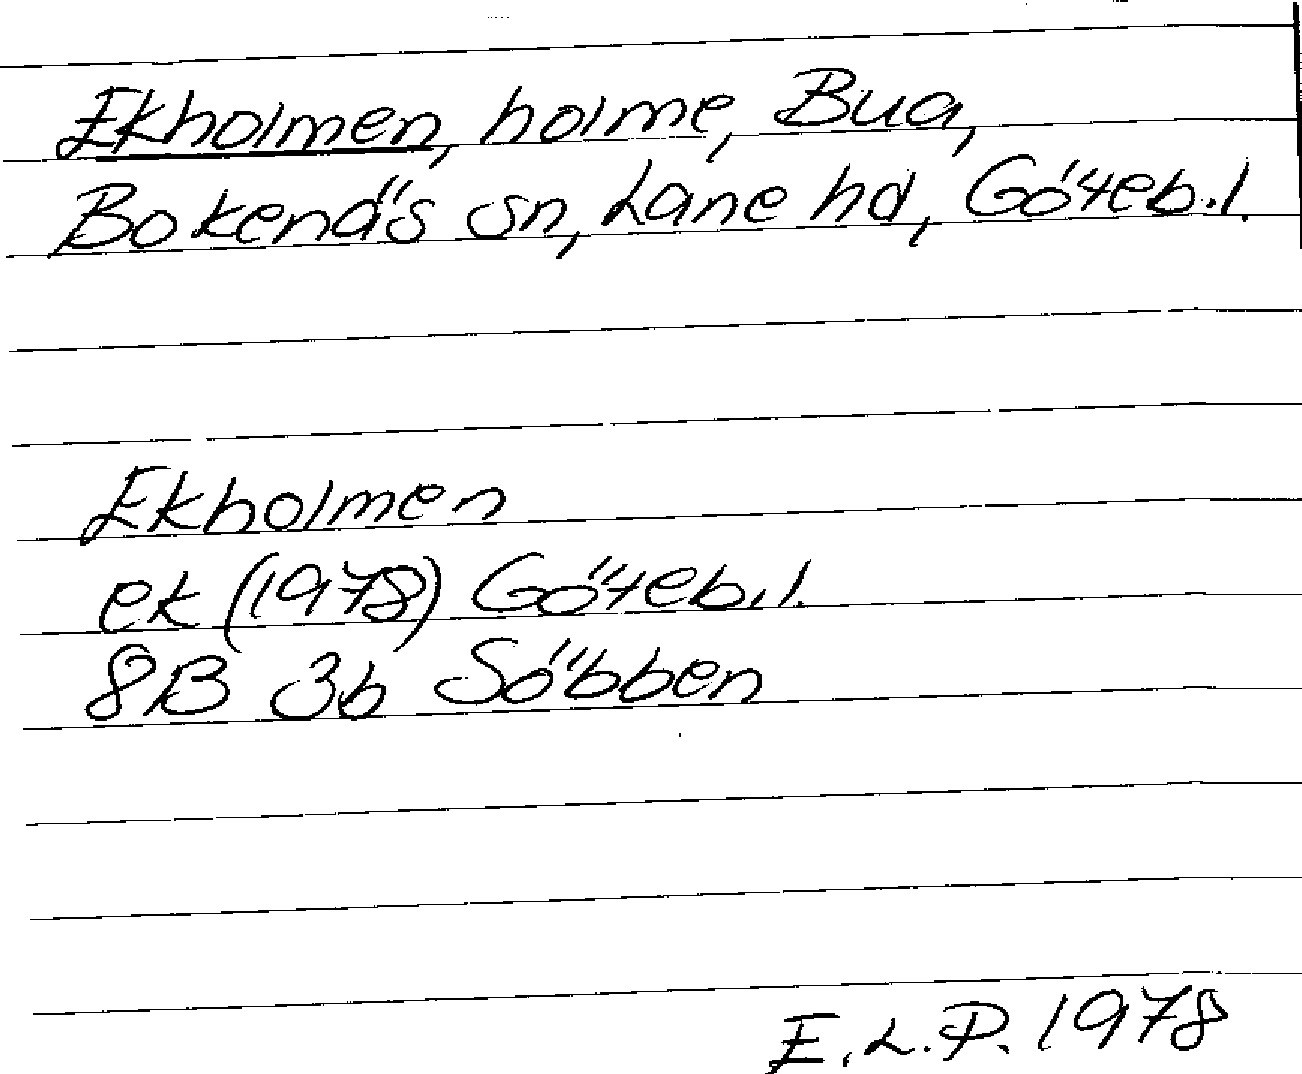 Ekholmen, holme, Bua,
Bokenäs sn, Lane hd, Göteb.l.
Ekholmen
ek (1978) Göteb.l.
8B 3b Söbben
E.L.P. 1978